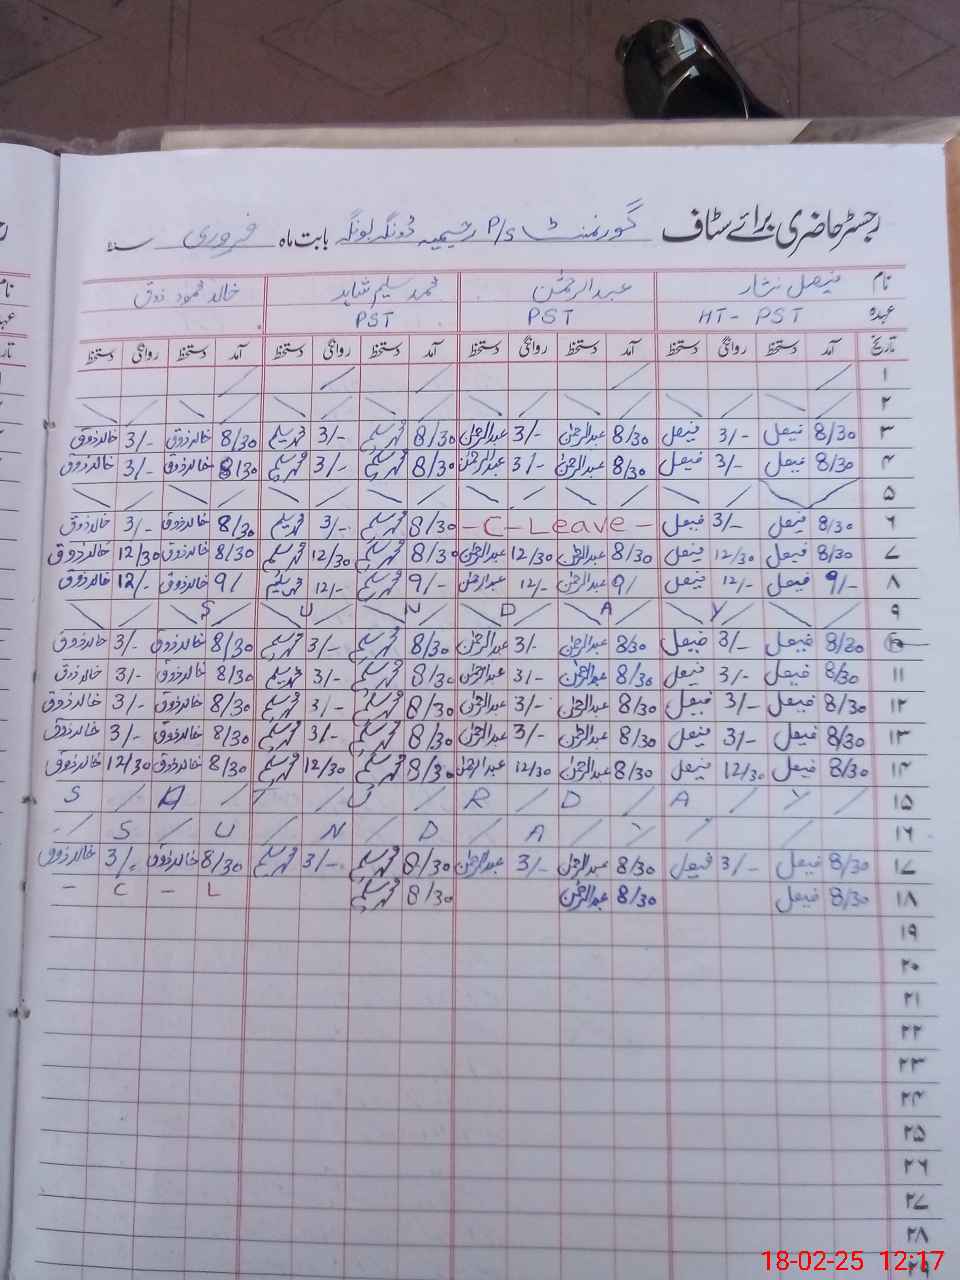 رجسٹر حاضری برائے سٹاف گورنمنٹ P/S رحیمیہ ڈونگہ بونگہ بابت ماہ فروری سنہ
نام فیصل نثار عبدالرحمٰن محمد سلیم شاہد خالد محمود ذوق
عہدہ HT- PST PST PST
تاریخ آمد دستخط روانگی دستخط آمد دستخط روانگی دستخط آمد دستخط روانگی دستخط آمد دستخط روانگی دستخط
۱
۲
۳ 8/30 فیصل 3/- فیصل 8/30 عبدالرحمٰن 3/- عبدالرحمٰن 8/30 محمد سلیم 3/- محمد سلیم 8/30 خالد ذوق 3/- خالد ذوق
۴ 8/30 فیصل 3/- فیصل 8/30 عبدالرحمٰن 3/- عبدالرحمٰن 8/30 محمد سلیم 3/- محمد سلیم 8/30 خالد ذوق 3/- خالد ذوق
۵
۶ 8/30 فیصل 3/- فیصل - C - Leave - 8/30 محمد سلیم 3/- محمد سلیم 8/30 خالد ذوق 3/- خالد ذوق
۷ 8/30 فیصل 12/30 فیصل 8/30 عبدالرحمٰن 12/30 عبدالرحمٰن 8/30 محمد سلیم 12/30 محمد سلیم 8/30 خالد ذوق 12/30 خالد ذوق
۸ 9/- فیصل 12/- فیصل 9/ عبدالرحمٰن 12/- عبدالرحمٰن 9/- محمد سلیم 12/- محمد سلیم 9/ خالد ذوق 12/- خالد ذوق
۹ S U N D A Y
۱۰ 8/30 فیصل 3/- فیصل 8/30 عبدالرحمٰن 3/- عبدالرحمٰن 8/30 محمد سلیم 3/- محمد سلیم 8/30 خالد ذوق 3/- خالد ذوق
۱۱ 8/30 فیصل 3/- فیصل 8/30 عبدالرحمٰن 3/- عبدالرحمٰن 8/30 محمد سلیم 3/- محمد سلیم 8/30 خالد ذوق 3/- خالد ذوق
۱۲ 8/30 فیصل 3/- فیصل 8/30 عبدالرحمٰن 3/- عبدالرحمٰن 8/30 محمد سلیم 3/- محمد سلیم 8/30 خالد ذوق 3/- خالد ذوق
۱۳ 8/30 فیصل 3/- فیصل 8/30 عبدالرحمٰن 3/- عبدالرحمٰن 8/30 محمد سلیم 3/- محمد سلیم 8/30 خالد ذوق 3/- خالد ذوق
۱۴ 8/30 فیصل 12/30 فیصل 8/30 عبدالرحمٰن 12/30 عبدالرحمٰن 8/30 محمد سلیم 12/30 محمد سلیم 8/30 خالد ذوق 12/30 خالد ذوق
۱۵ S A T U R D A Y
۱۶ S U N D A Y
۱۷ 8/30 فیصل 3/- فیصل 8/30 عبدالرحمٰن 3/- عبدالرحمٰن 8/30 محمد سلیم 3/- محمد سلیم 8/30 خالد ذوق 3/- خالد ذوق
۱۸ 8/30 فیصل 8/30 عبدالرحمٰن 8/30 محمد سلیم - C - L
۱۹
۲۰
۲۱
۲۲
۲۳
۲۴
۲۵
۲۶
۲۷
۲۸
۲۹
18-02-25 12:17